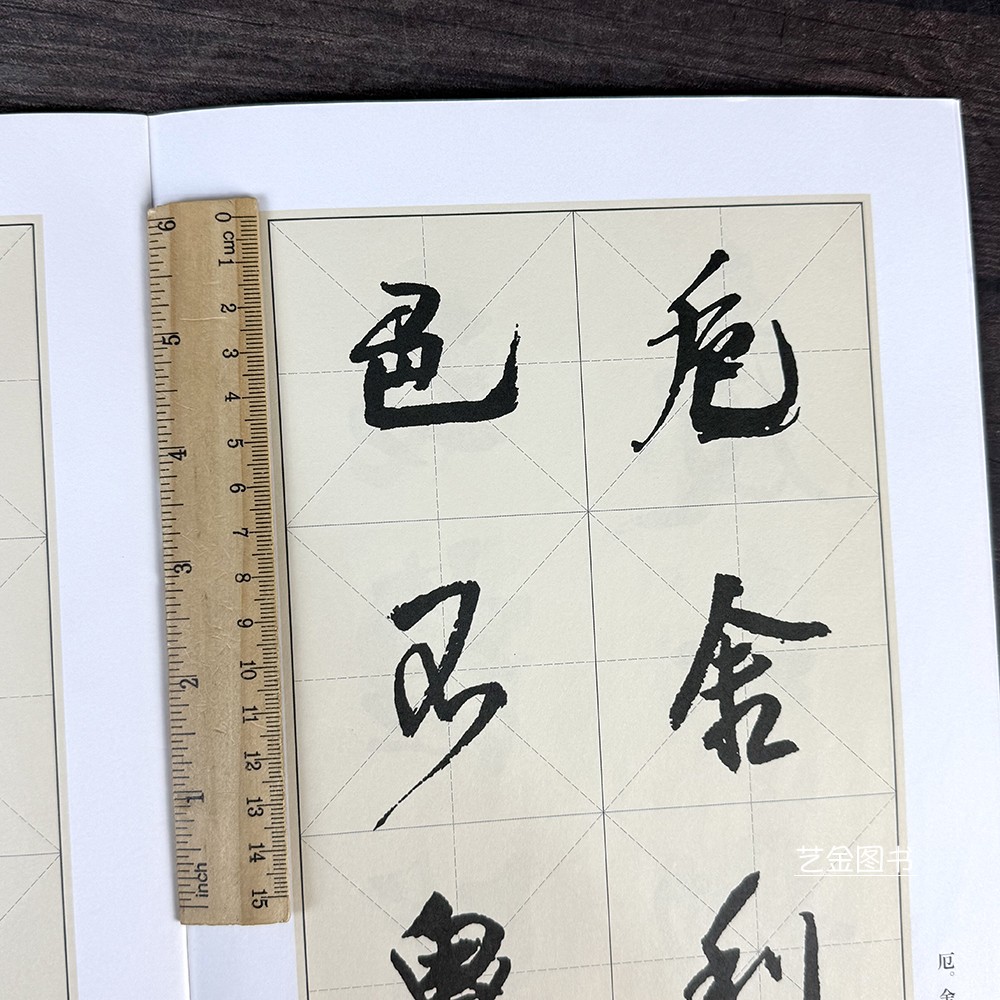 厄
舍
利
色
不
異
厄。舍
0 cm 1 2 3 4 5 6 7 8 9 10 11 12 13 14 15
inch 1 2 3 4 5 6
艺金图书